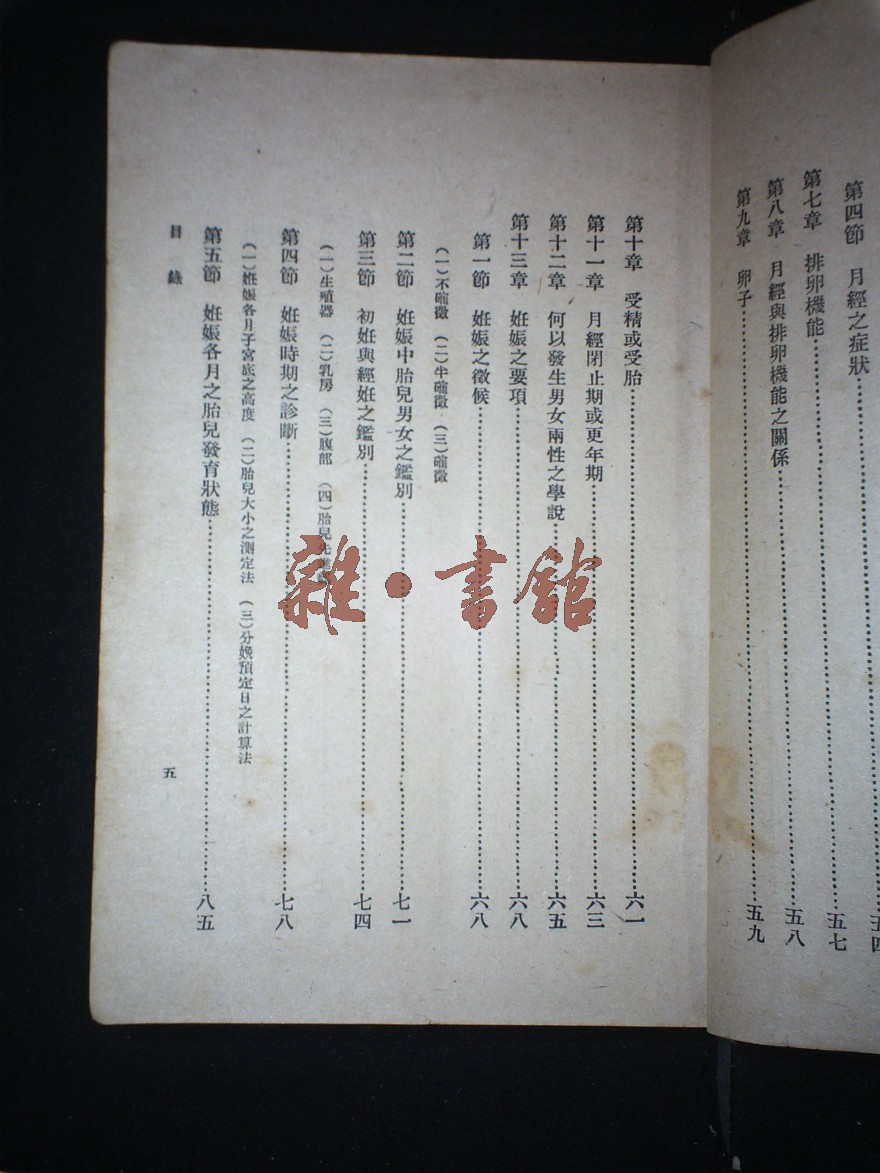 第四節　月經之症狀…………五四
第七章　排卵機能…………五七
第八章　月經與排卵機能之關係…………五八
第九章　卵子…………五九
第十章　受精或受胎…………六一
第十一章　月經閉止期或更年期…………六三
第十二章　何以發生男女兩性之學說…………六五
第十三章　姙娠之要項…………六八
第一節　姙娠之徵候…………六八
（一）不確徵　（二）半確徵　（三）確徵
第二節　姙娠中胎兒男女之鑑別…………七一
第三節　初姙與經姙之鑑別…………七四
（一）生殖器　（二）乳房　（三）腹部　（四）胎兒先進
第四節　姙娠時期之診斷…………七八
（一）姙娠各月子宮底之高度　（二）胎兒大小之測定法　（三）分娩預定日之計算法
第五節　姙娠各月之胎兒發育狀態…………八五
目錄
五
雜・書館